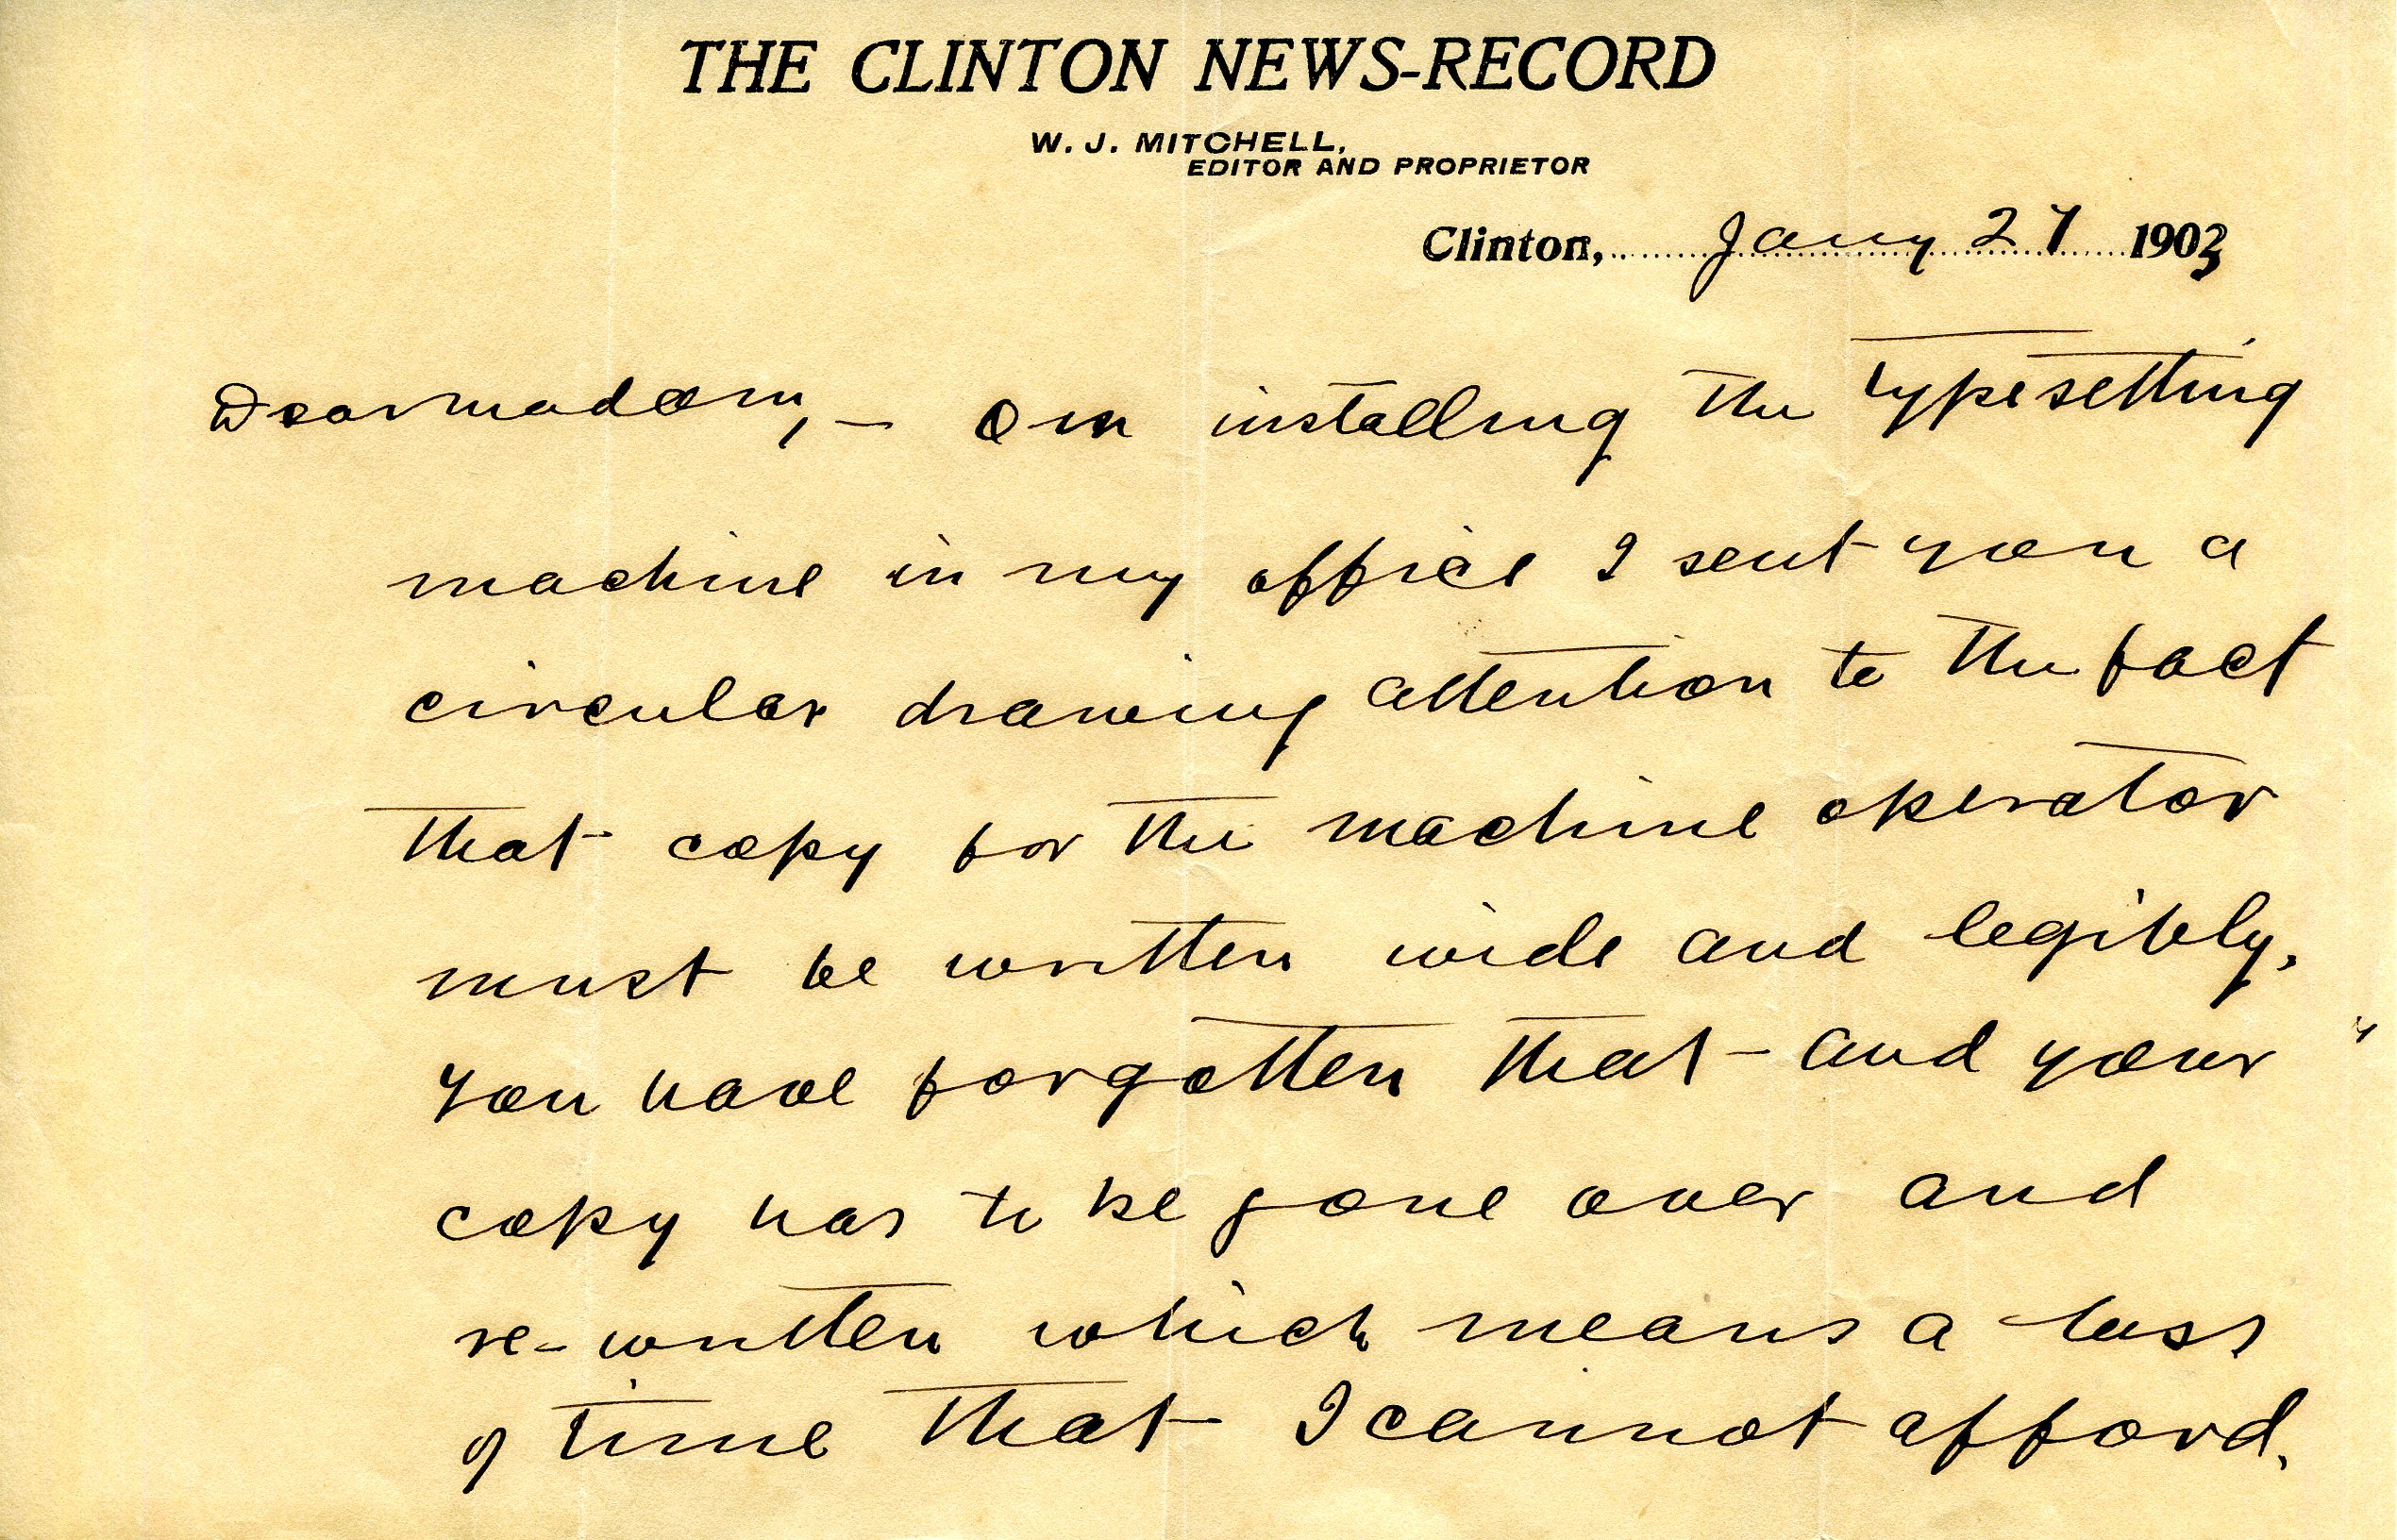 THE CLINTON NEWS-RECORD
W. J. MITCHELL,
EDITOR AND PROPRIETOR
Clinton, Jany 27 1903
Dear madam, — On installing the typesetting
machine in my office I sent you a
circular drawing attention to the fact
that copy for the machine operator
must be written wide and legibly.
You have forgotten that - and your
copy has to be gone over and
re-written which means a loss
of time that I cannot afford.